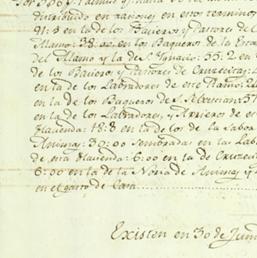 distribuido en raciones en esto terminos
21:8 en la de los Baqueros y Pastores de l
Alamo: 38:00 en los Baqueros de la
del Alamo y la de Sn. Ignacio: 55:2 en
de los Baqueros y Pastores de Cruzecitas:
en la de los Labradores de este Ramo: 2
en la de los Baqueros de S. Sebastian: 57
en la de los Labradores, y Arrieros de es
Hacienda: 18:8 en la de los de la labor
Animas: 30:00 sembradas en la Lab
de esta Hacienda: 6:00 en la de Cruzecit
6:00 en la de la Noria de Animas y
en el gasto de Casa
Existen en 30 de Jun